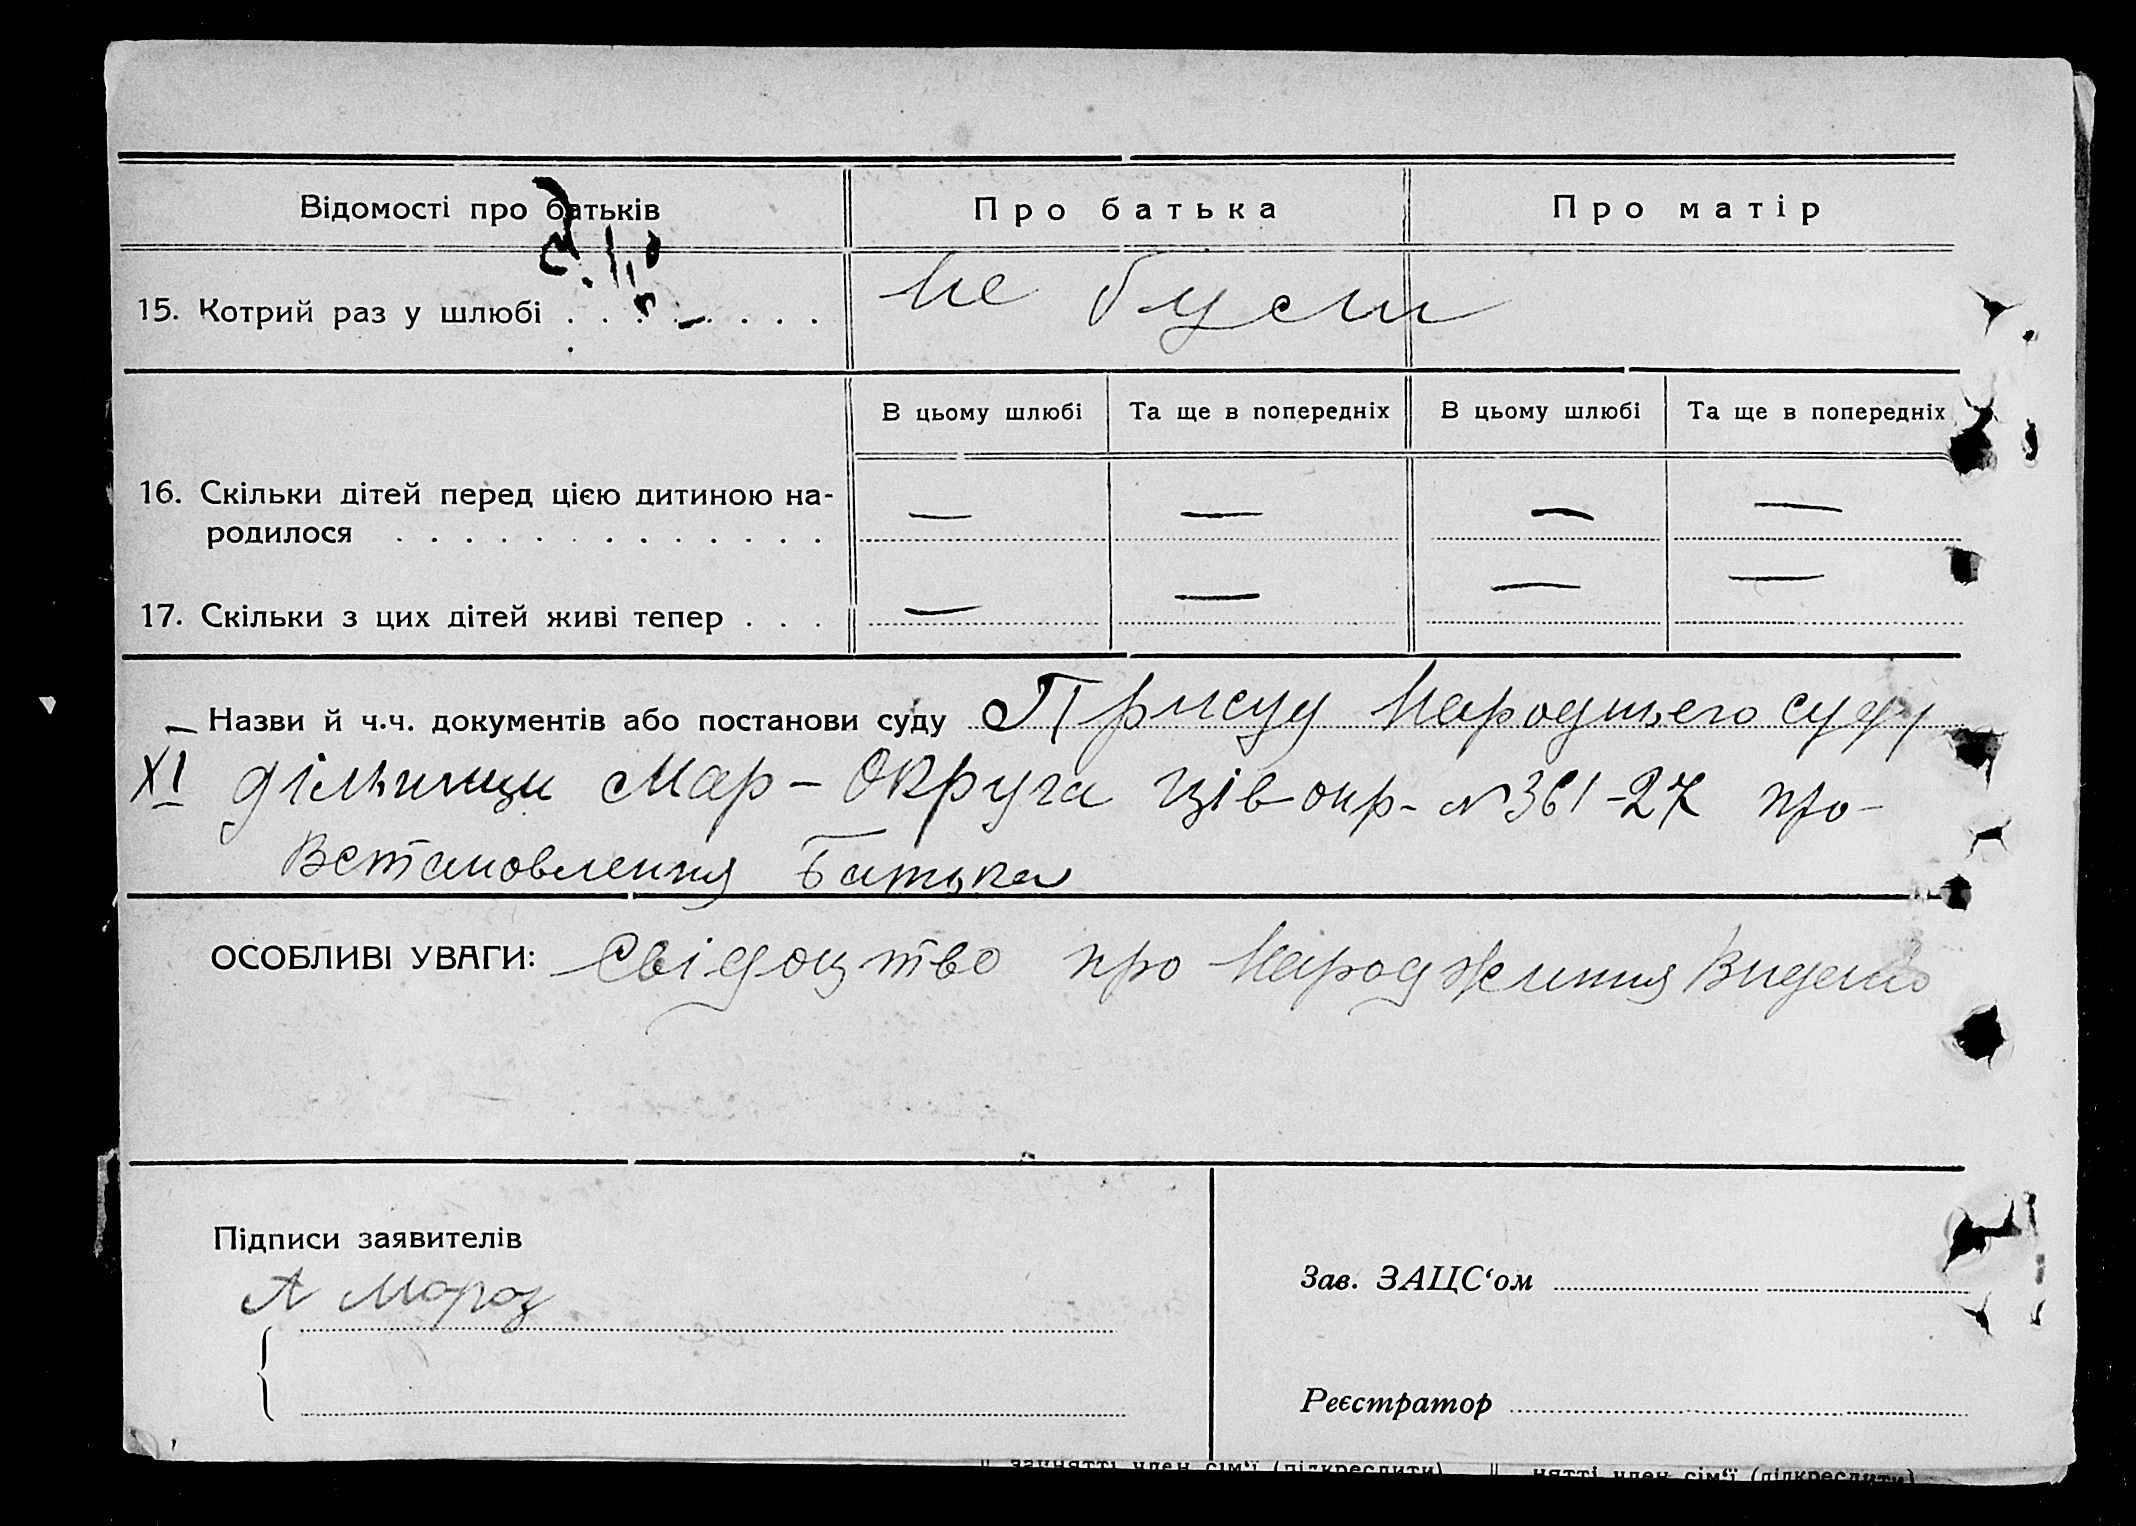 Відомості про батьків
Про батька
Про матір
15. Котрий раз у шлюбі . . . . . . . .
не були
В цьому шлюбі
Та ще в попередніх
В цьому шлюбі
Та ще в попередніх
16. Скільки дітей перед цією дитиною на-
родилося . . . . . . . . . . . . .
— — — —
17. Скільки з цих дітей живі тепер . . .
— — — —
Назви й ч.ч. документів або постанови суду Присуд Народнього суду
XI дільници Мар-Округа ців окр- № 361-27 про-
Встановлення Батька
ОСОБЛИВІ УВАГИ: Свідоцтво про Народження Видано
Підписи заявителів
А Мороз
Зав. ЗАЦС‘ом
Реєстратор
занятті член сім‘ї (підкреслити)
нятті член сім‘ї (підкреслити)